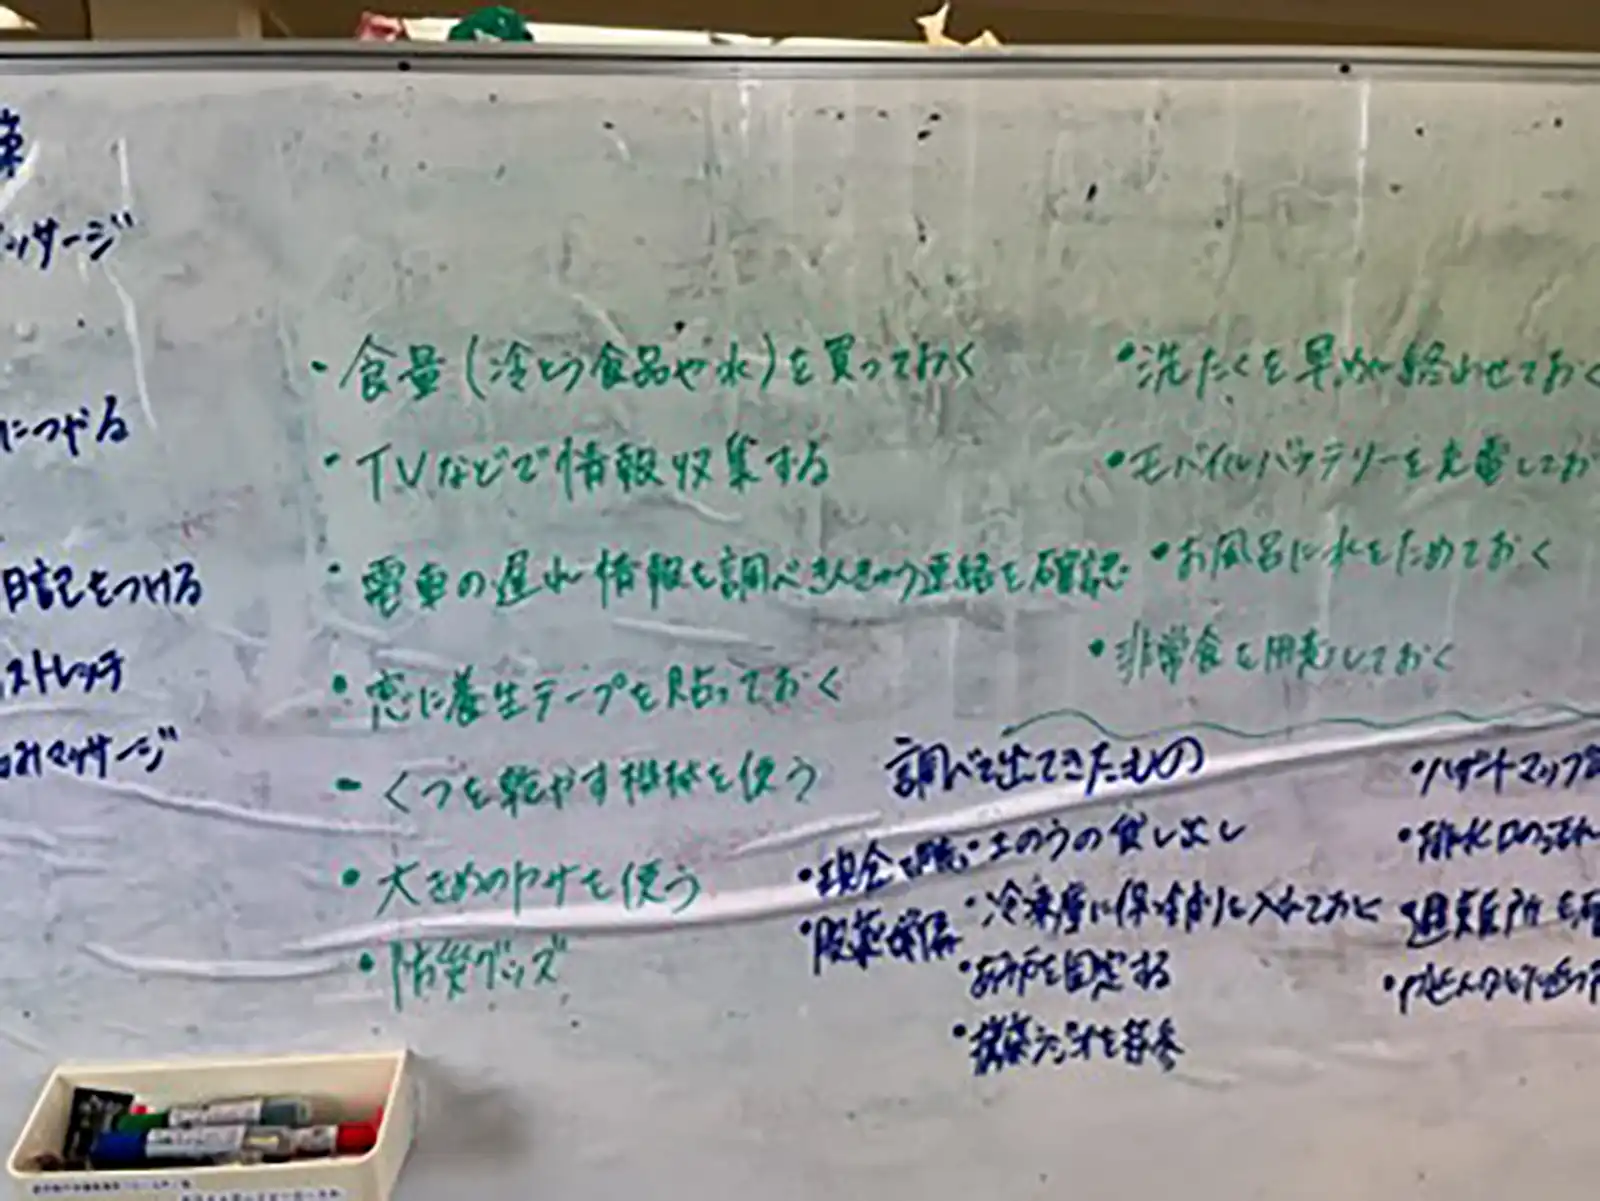 ッサージ
につやる
日記をつける
ストレッチ
マッサージ
・食量(冷とう食品や水)を買っておく
・TVなどで情報収集する
・電車の遅れ情報を調べきんきゅう連絡を確認
・窓に養生テープを貼っておく
・くつを乾やす機械を使う
・大きめのカサを使う
・防災グッズ
・洗たくを早めに終わせておく
・モバイルバッテリーを充電してお
・お風呂に水をためておく
・非常食を用意しておく
調べて出てきたもの
・現金を用意
・服薬確保
・土のうの貸し出し
・冷凍庫に保冷剤を入れておく
を固定する
・携帯ラジオを持参
・ハザードマップ
・排水口の
避難所を確